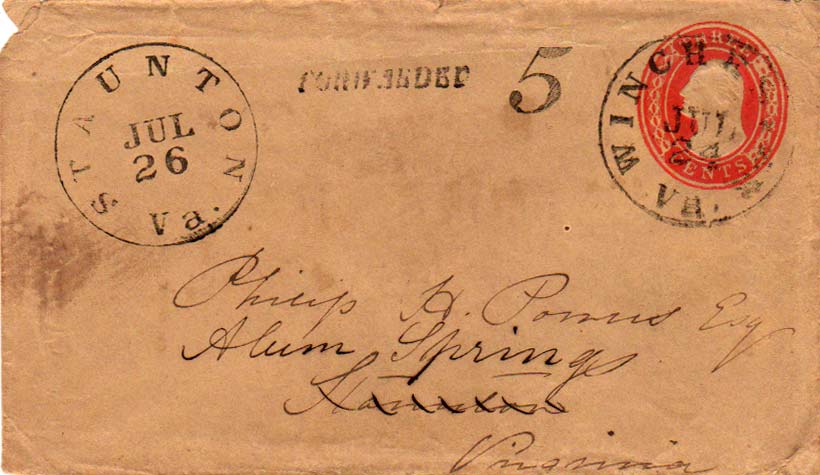 STAUNTON Va.
JUL
26
FORWARDED
5
WINCHESTER VA.
JUL
24
THREE
CENTS
Philip H. Powers Esq
Alum Springs
Staunton
Virginia